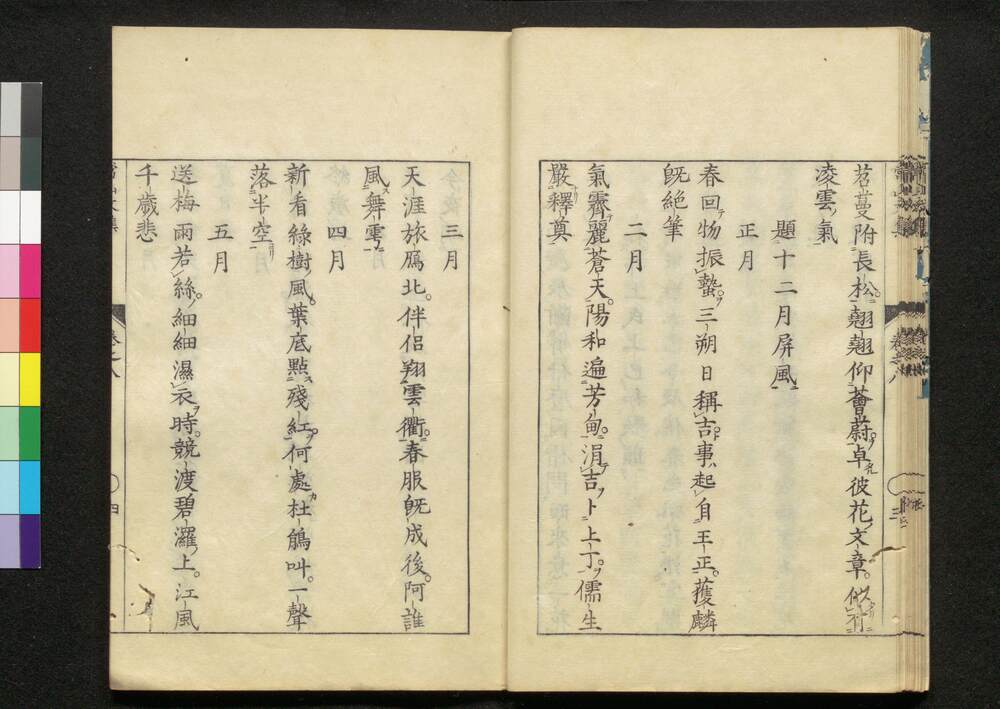 苕蔓附長松翹翹仰薈蔚卓彼花文章似有
凌雲氣
題十二月屏風
正月
春回物振蟄三朔日稱吉事起自王正獲麟
既絶筆
二月
氣霽麗蒼天陽和遍芳甸涓吉卜上丁儒生
嚴釋奠
三月
天涯旅鴈北伴侶翔雲衢春服既成後阿誰
風舞雩
四月
新看綠樹風葉底點殘紅何處杜鵑叫一聲
落半空
五月
送梅雨若絲細細濕衣時競渡碧灘上江風
千歲悲
卷之八
四